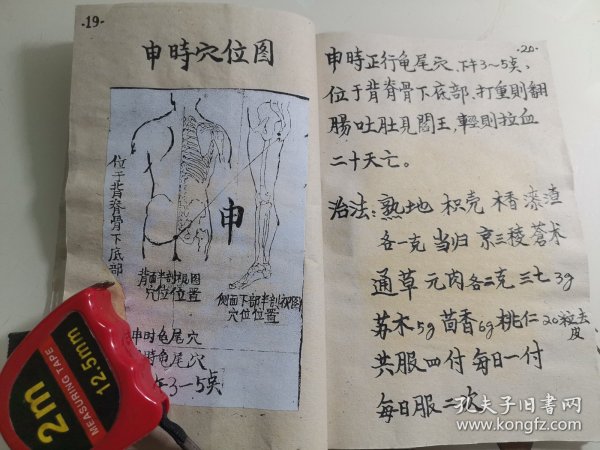 ·19·
申時穴位图
位于背脊骨下底部
申
背面半剖视图
穴位位置
侧面下部半剖视图
穴位位置
申时龟尾穴
時龟尾穴
午3—5点
2m
MEASURING TAPE
12.5mm
·20·
申時正行龟尾穴、下午3~5点,
位于背脊骨下底部、打重則翻
腸吐肚見閻王,輕則拉血
二十天亡。
治法:熟地 枳壳 木香 漆渣
各一克 当归 京三稜 蒼术
通草 元肉各二克 三七 3g
苏木5g 茴香6g 桃仁20粒去皮
共服四付 每日一付
每日服二次
孔夫子旧书网
www.kongfz.com